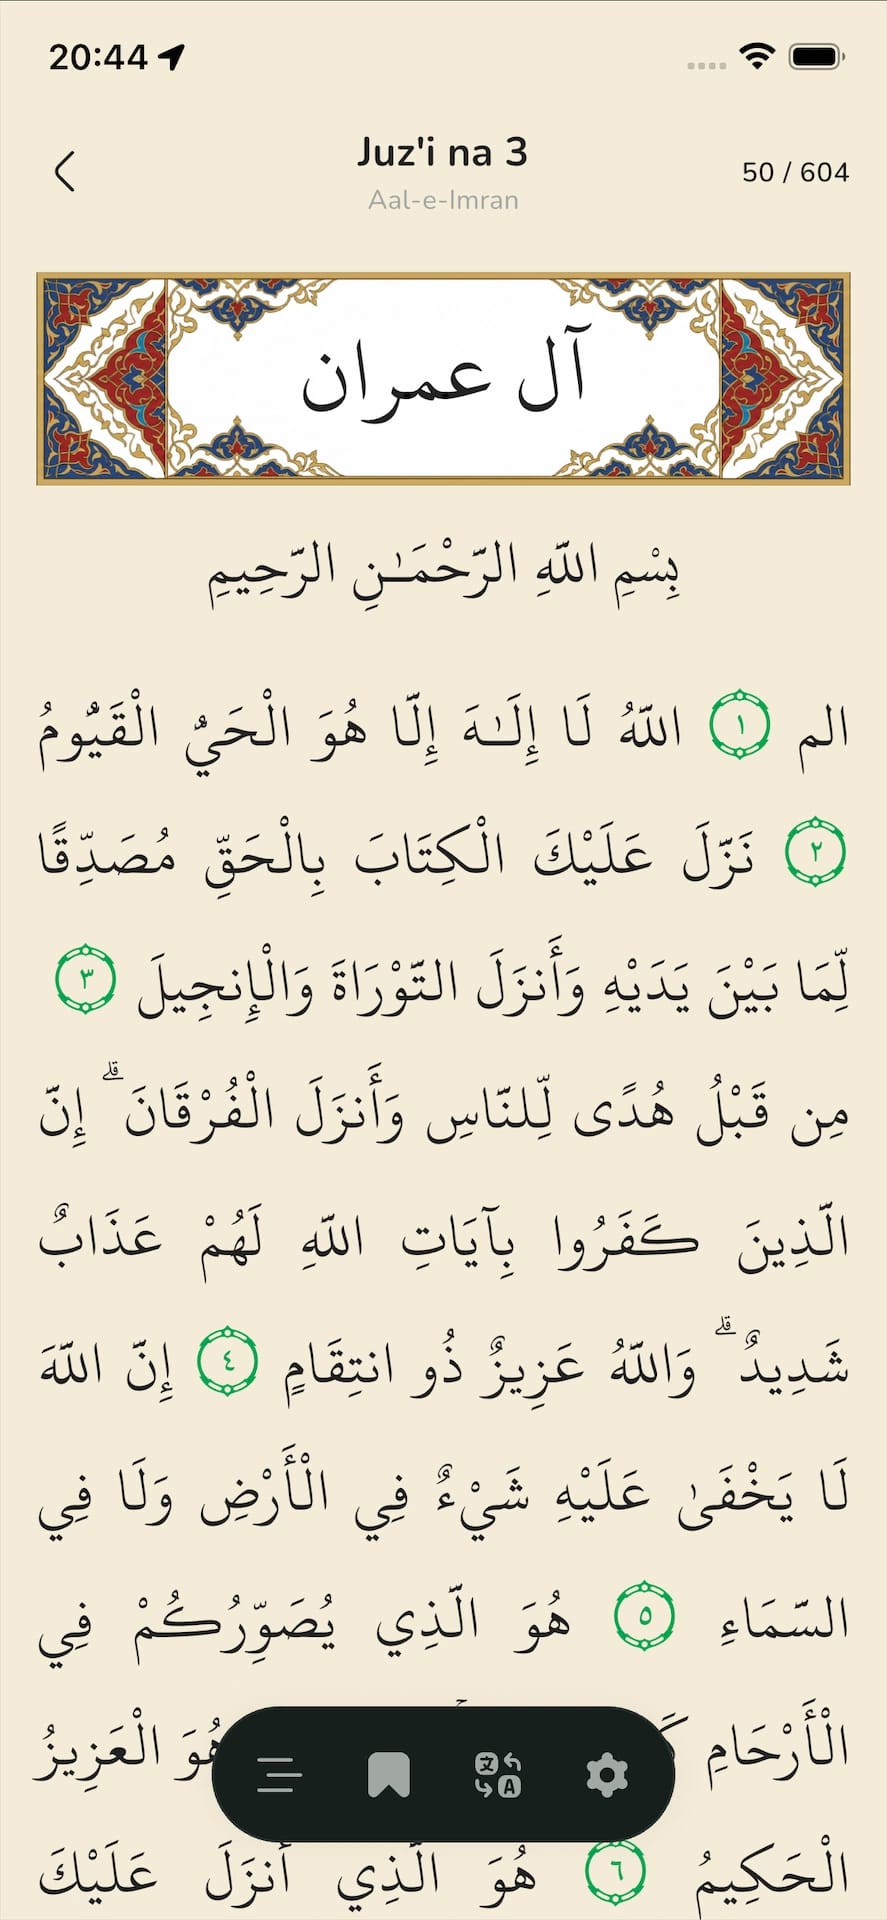 20:44
Juz'i na 3
Aal-e-Imran
50 / 604
آل عمران
بِسْمِ اللَّهِ الرَّحْمَـٰنِ الرَّحِيمِ
الم ١ اللَّهُ لَا إِلَـٰهَ إِلَّا هُوَ الْحَيُّ الْقَيُّومُ
٢ نَزَّلَ عَلَيْكَ الْكِتَابَ بِالْحَقِّ مُصَدِّقًا
لِّمَا بَيْنَ يَدَيْهِ وَأَنزَلَ التَّوْرَاةَ وَالْإِنجِيلَ ٣
مِن قَبْلُ هُدًى لِّلنَّاسِ وَأَنزَلَ الْفُرْقَانَ ۗ إِنَّ
الَّذِينَ كَفَرُوا بِآيَاتِ اللَّهِ لَهُمْ عَذَابٌ
شَدِيدٌ ۗ وَاللَّهُ عَزِيزٌ ذُو انتِقَامٍ ٤ إِنَّ اللَّهَ
لَا يَخْفَىٰ عَلَيْهِ شَيْءٌ فِي الْأَرْضِ وَلَا فِي
السَّمَاءِ ٥ هُوَ الَّذِي يُصَوِّرُكُمْ فِي
الْأَرْحَامِ هُوَ الْعَزِيزُ
الْحَكِيمُ ٦ هُوَ الَّذِي أَنزَلَ عَلَيْكَ